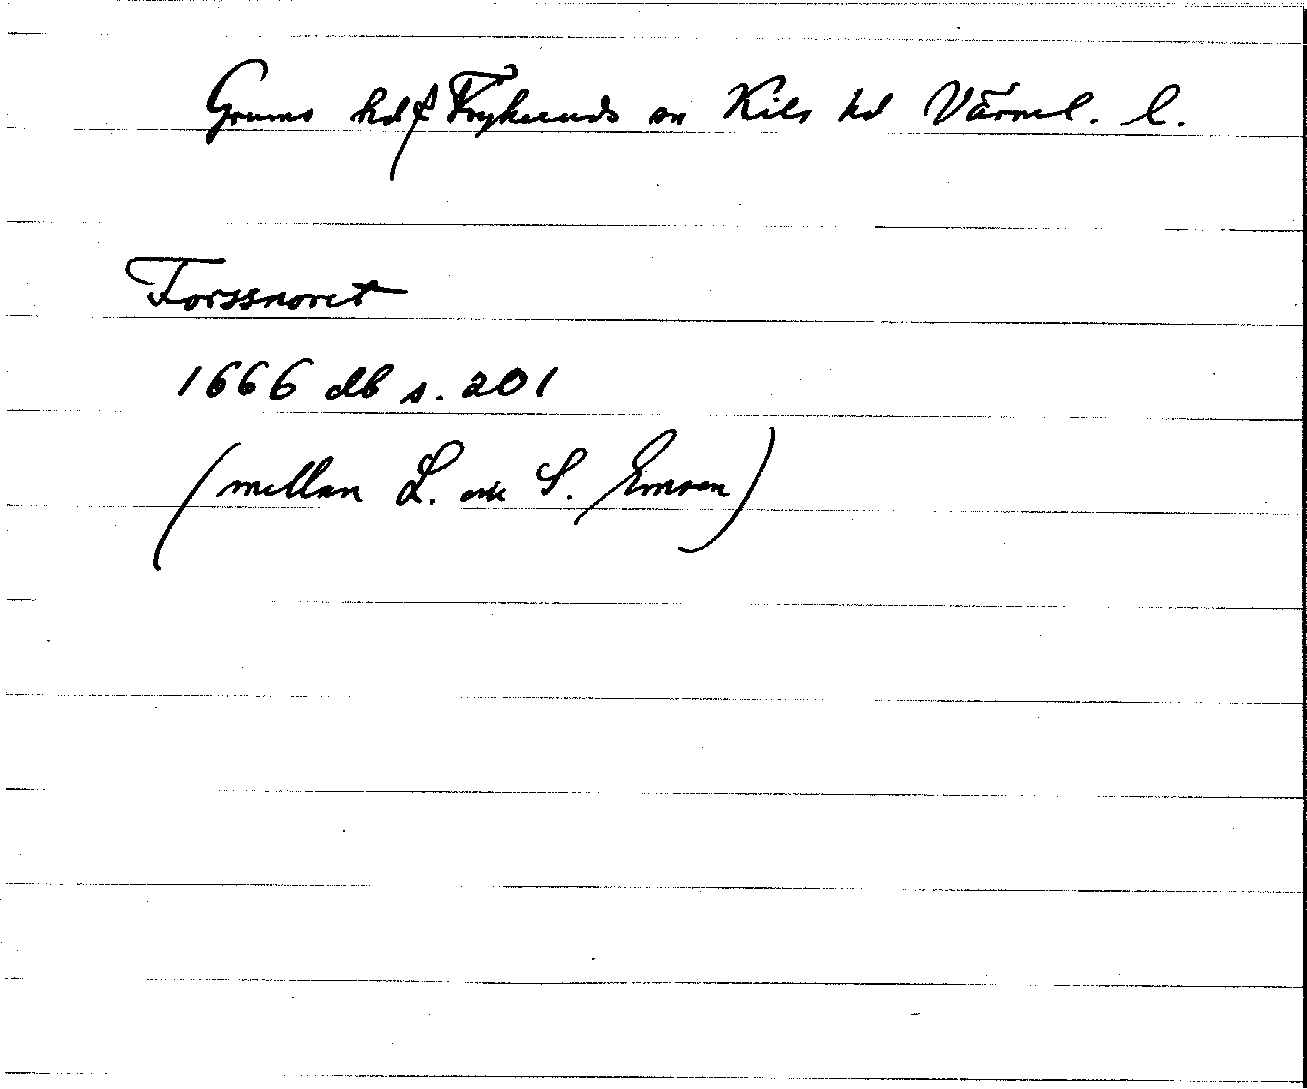 Grums hd f Frykeruds sn Kils hd Värml. l.
Forssnoret
1666 db s. 201
(mellan L. och S. Emsen)